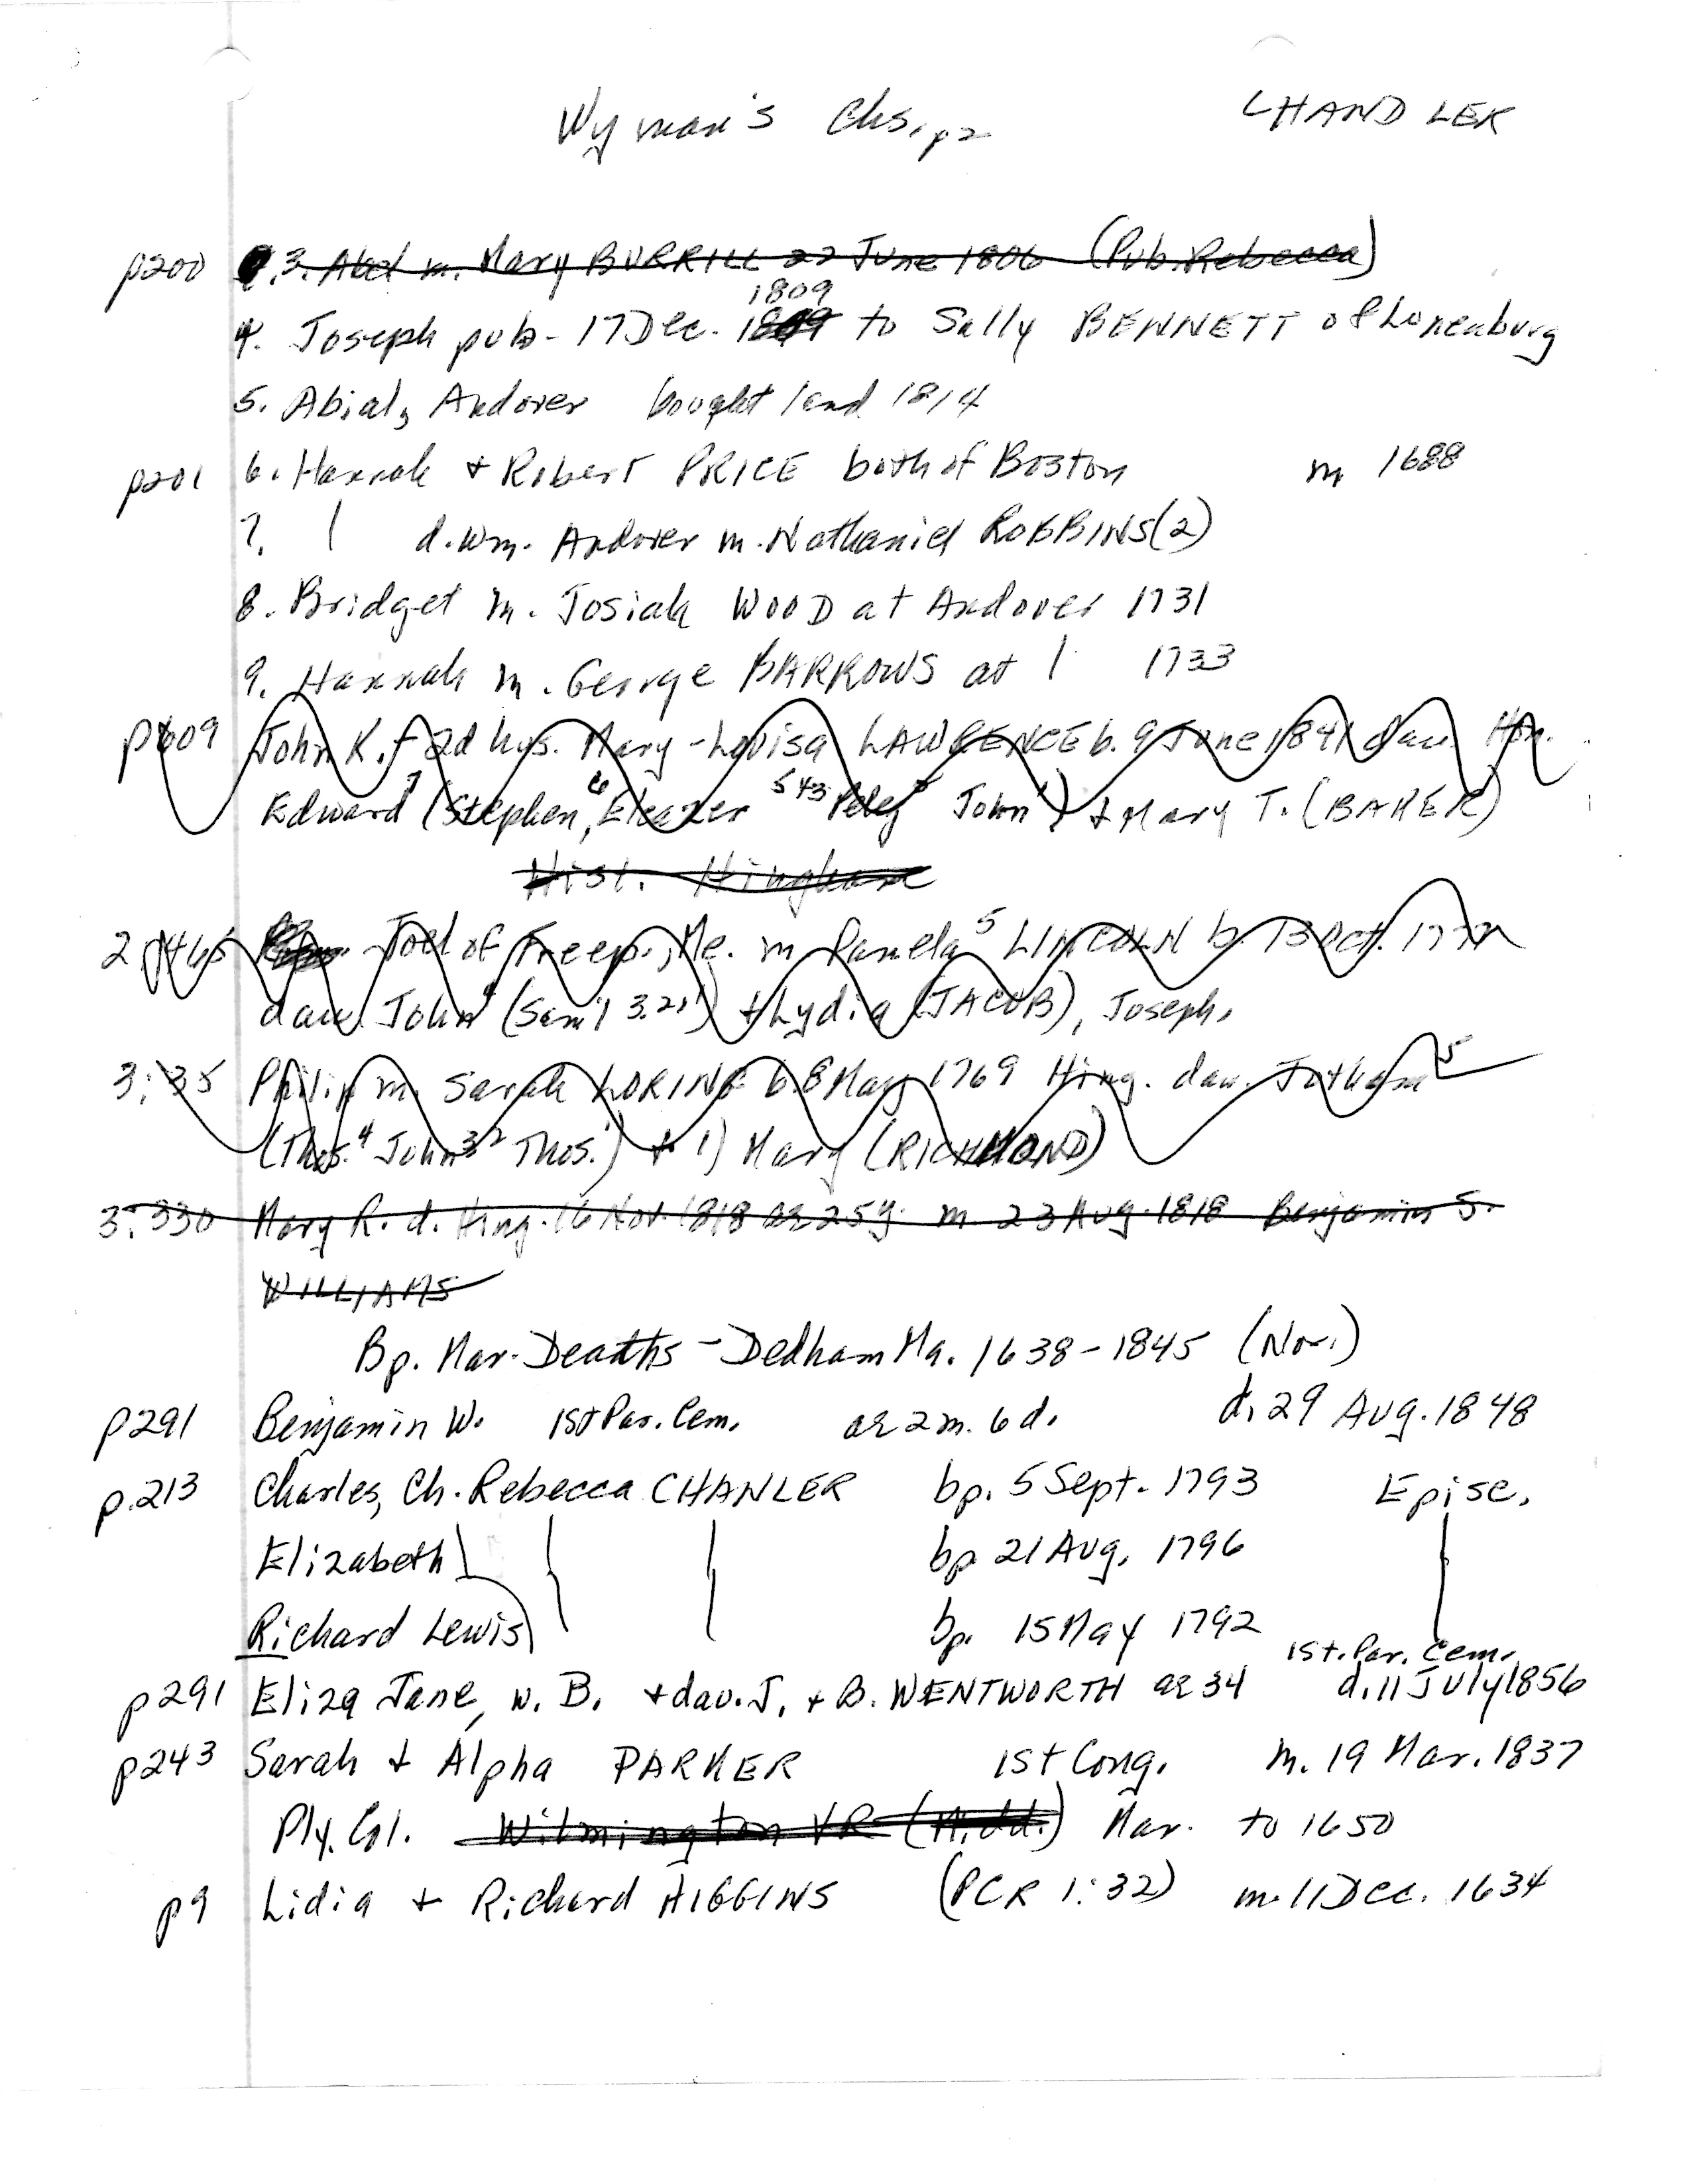 Wyman's Chs. p2 CHANDLER
p200 3. Abel m. Mary BURRILL 22 June 1806 (Pub. Rebecca)
1809
4. Joseph pub- 17 Dec. 1809 to Sally BENNETT of Lunenburg
5. Abial, Andover bought land 1814
p201 6. Hannah + Robert PRICE both of Boston m 1688
7. | d. Wm. Andover m. Nathaniel ROBBINS (2)
8. Bridget m. Josiah WOOD at Andover 1731
9. Hannah m. George BARROWS at | 1733
p609 John K. f 2d hus. Mary-Louisa LAWRENCE b. 9 June 1841 dau. Hon.
Edward7 (Stephen6, Eleazer 543 Peleg2 John1) + Mary T. (BAKER)
Hist. Hingham
2 p465 Joel of Freep., Me. m Pamela5 LINCOLN b. 13 Oct. 177
dau. John4 (Sam'l 3.2,1) + Lydia (JACOB), Joseph.
3:35 Philip m. Sarah LORING b. 8 May 1769 Hing. dau. Jotham5
(Thos.4 John32 Thos.1) + 1) Mary (RICHMOND)
3:330 Mary R. d. Hing. 16 Nov. 1818 ae 25y. m. 23 Aug. 1818 Benjamin S.
WILLIAMS
Bp. Mar. Deaths - Dedham Ma. 1638-1845 (Nov.)
p291 Benjamin W. 1st Par. Cem. ae 2m. 6d. d. 29 Aug. 1848
p.213 Charles, Ch. Rebecca CHANLER bp. 5 Sept. 1793 Episc.
Elizabeth bp 21 Aug. 1796
Richard Lewis bp. 15 May 1792
1st. Par. Cem.
p291 Eliza Jane, w. B. + dau. J. + B. WENTWORTH ae 34 d. 11 July 1856
p243 Sarah + Alpha PARKER 1st Cong. m. 19 Mar. 1837
Ply. Col. Wilmington VR (Midd.) Mar. to 1650
p9 Lidia + Richard HIGGINS (PCR 1:32) m. 11 Dec. 1634